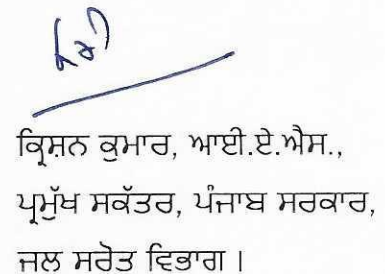 ਕ੍ਰਿਸ਼ਨ ਕੁਮਾਰ, ਆਈ.ਏ.ਐਸ.,
ਪ੍ਰਮੁੱਖ ਸਕੱਤਰ, ਪੰਜਾਬ ਸਰਕਾਰ,
ਜਲ ਸਰੋਤ ਵਿਭਾਗ।